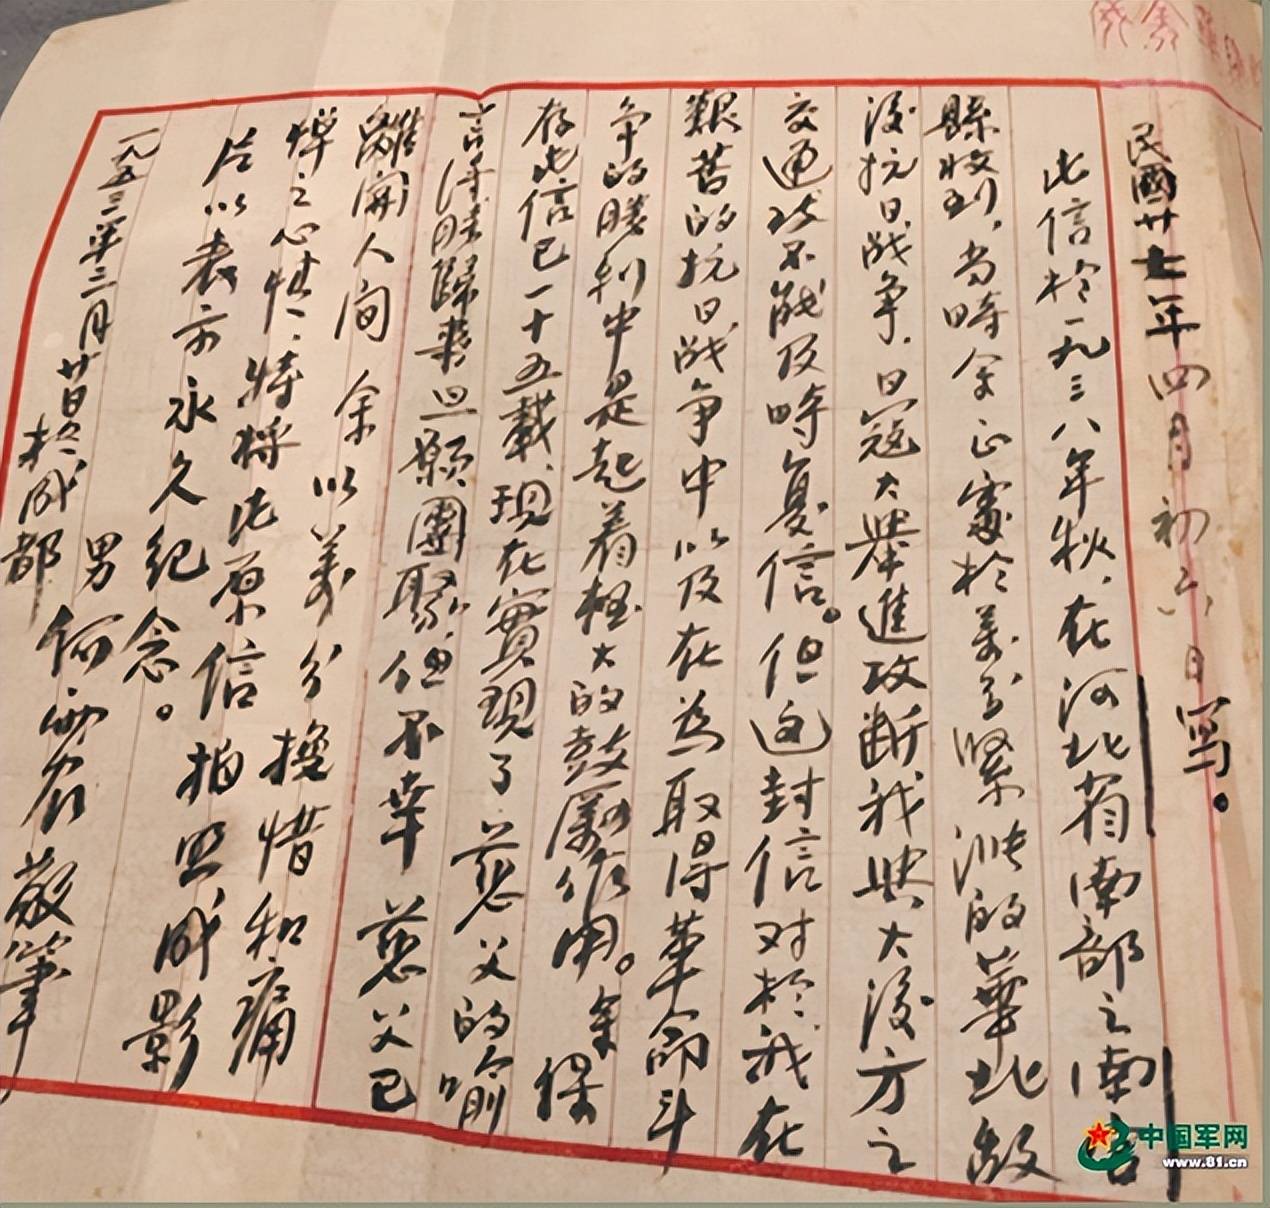 民國廿七年四月初六日寫。
此信於一九三八年秋，在河北省南部之南宮
縣收到，当時余正處於萬分緊張的華北敌
後抗日战争，日寇大舉進攻断我與大後方之
交通故不能及時复信。但这封信对於我在
艱苦的抗日战争中以及在為取得革命斗
争的勝利中是起着極大的鼓勵作用。余保
存此信已一十五載，現在實現了慈父的喻
言得勝歸来旦願團聚，但不幸慈父已
離開人间余以萬分惋惜和痛
悼之心情，特將此原信拍照成影
片以表示永久纪念。
男何雨农敬筆
一九五三年三月廿日於成都
中国军网
www.81.cn